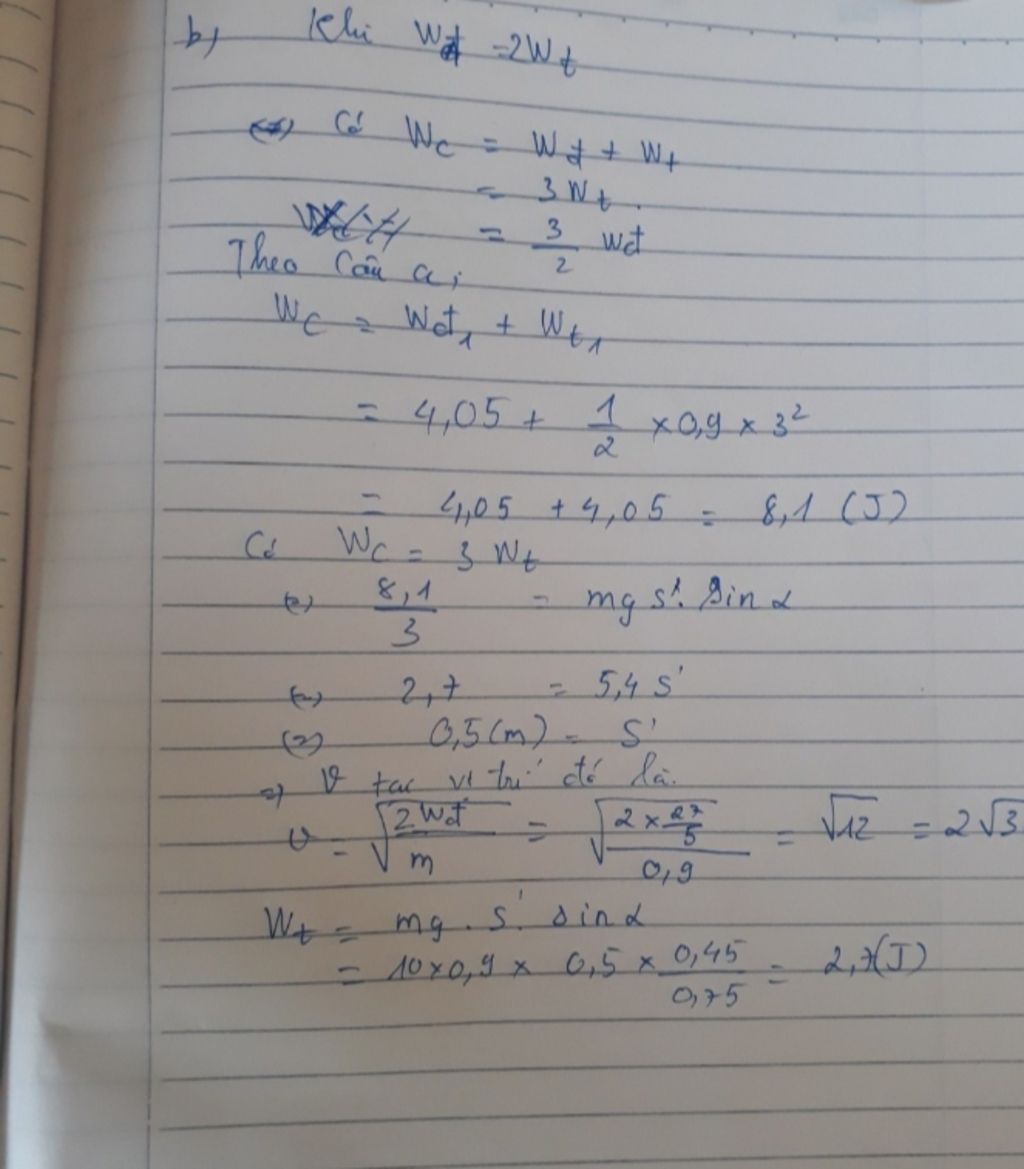 b, Khi Wđ = 2Wt
(=) Có Wc = Wđ + Wt
= 3Wt.
= 3/2 Wđ
Theo câu a;
Wc = Wđ1 + Wt1
= 4,05 + 1/2 × 0,9 × 3²
= 4,05 + 4,05 = 8,1 (J)
Có Wc = 3 Wt
(=) 8,1/3 = mg s'. sin α
(=) 2,7 = 5,4 s'
(=) 0,5(m) = S'
=) v tại vị trí đó là.
v = √(2Wđ/m) = √((2 × 27/5)/0,9) = √12 = 2√3
Wt = mg . S'. sin α
= 10×0,9 × 0,5 × 0,45/0,75 = 2,7(J)